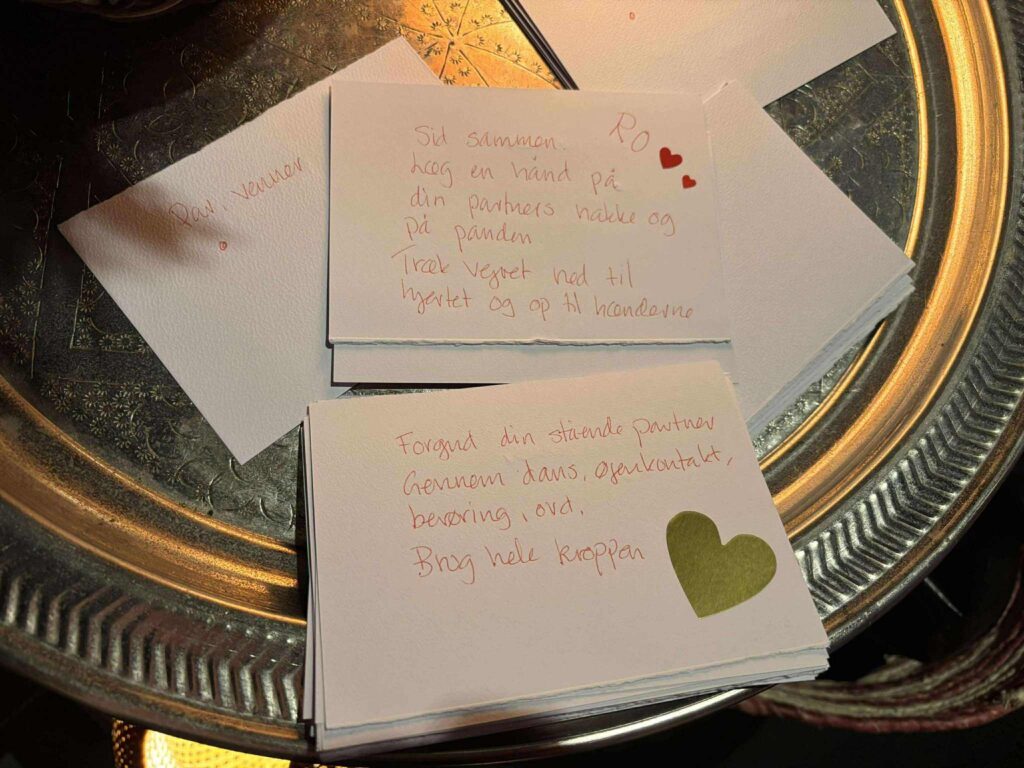 Par, venner
RO
Sid sammen.
Læg en hånd på
din partners nakke og
på panden
Træk vejret ned til
hjertet og op til hænderne
Forgud din stående partner
Gennem dans, øjenkontakt,
berøring, ord.
Brug hele kroppen